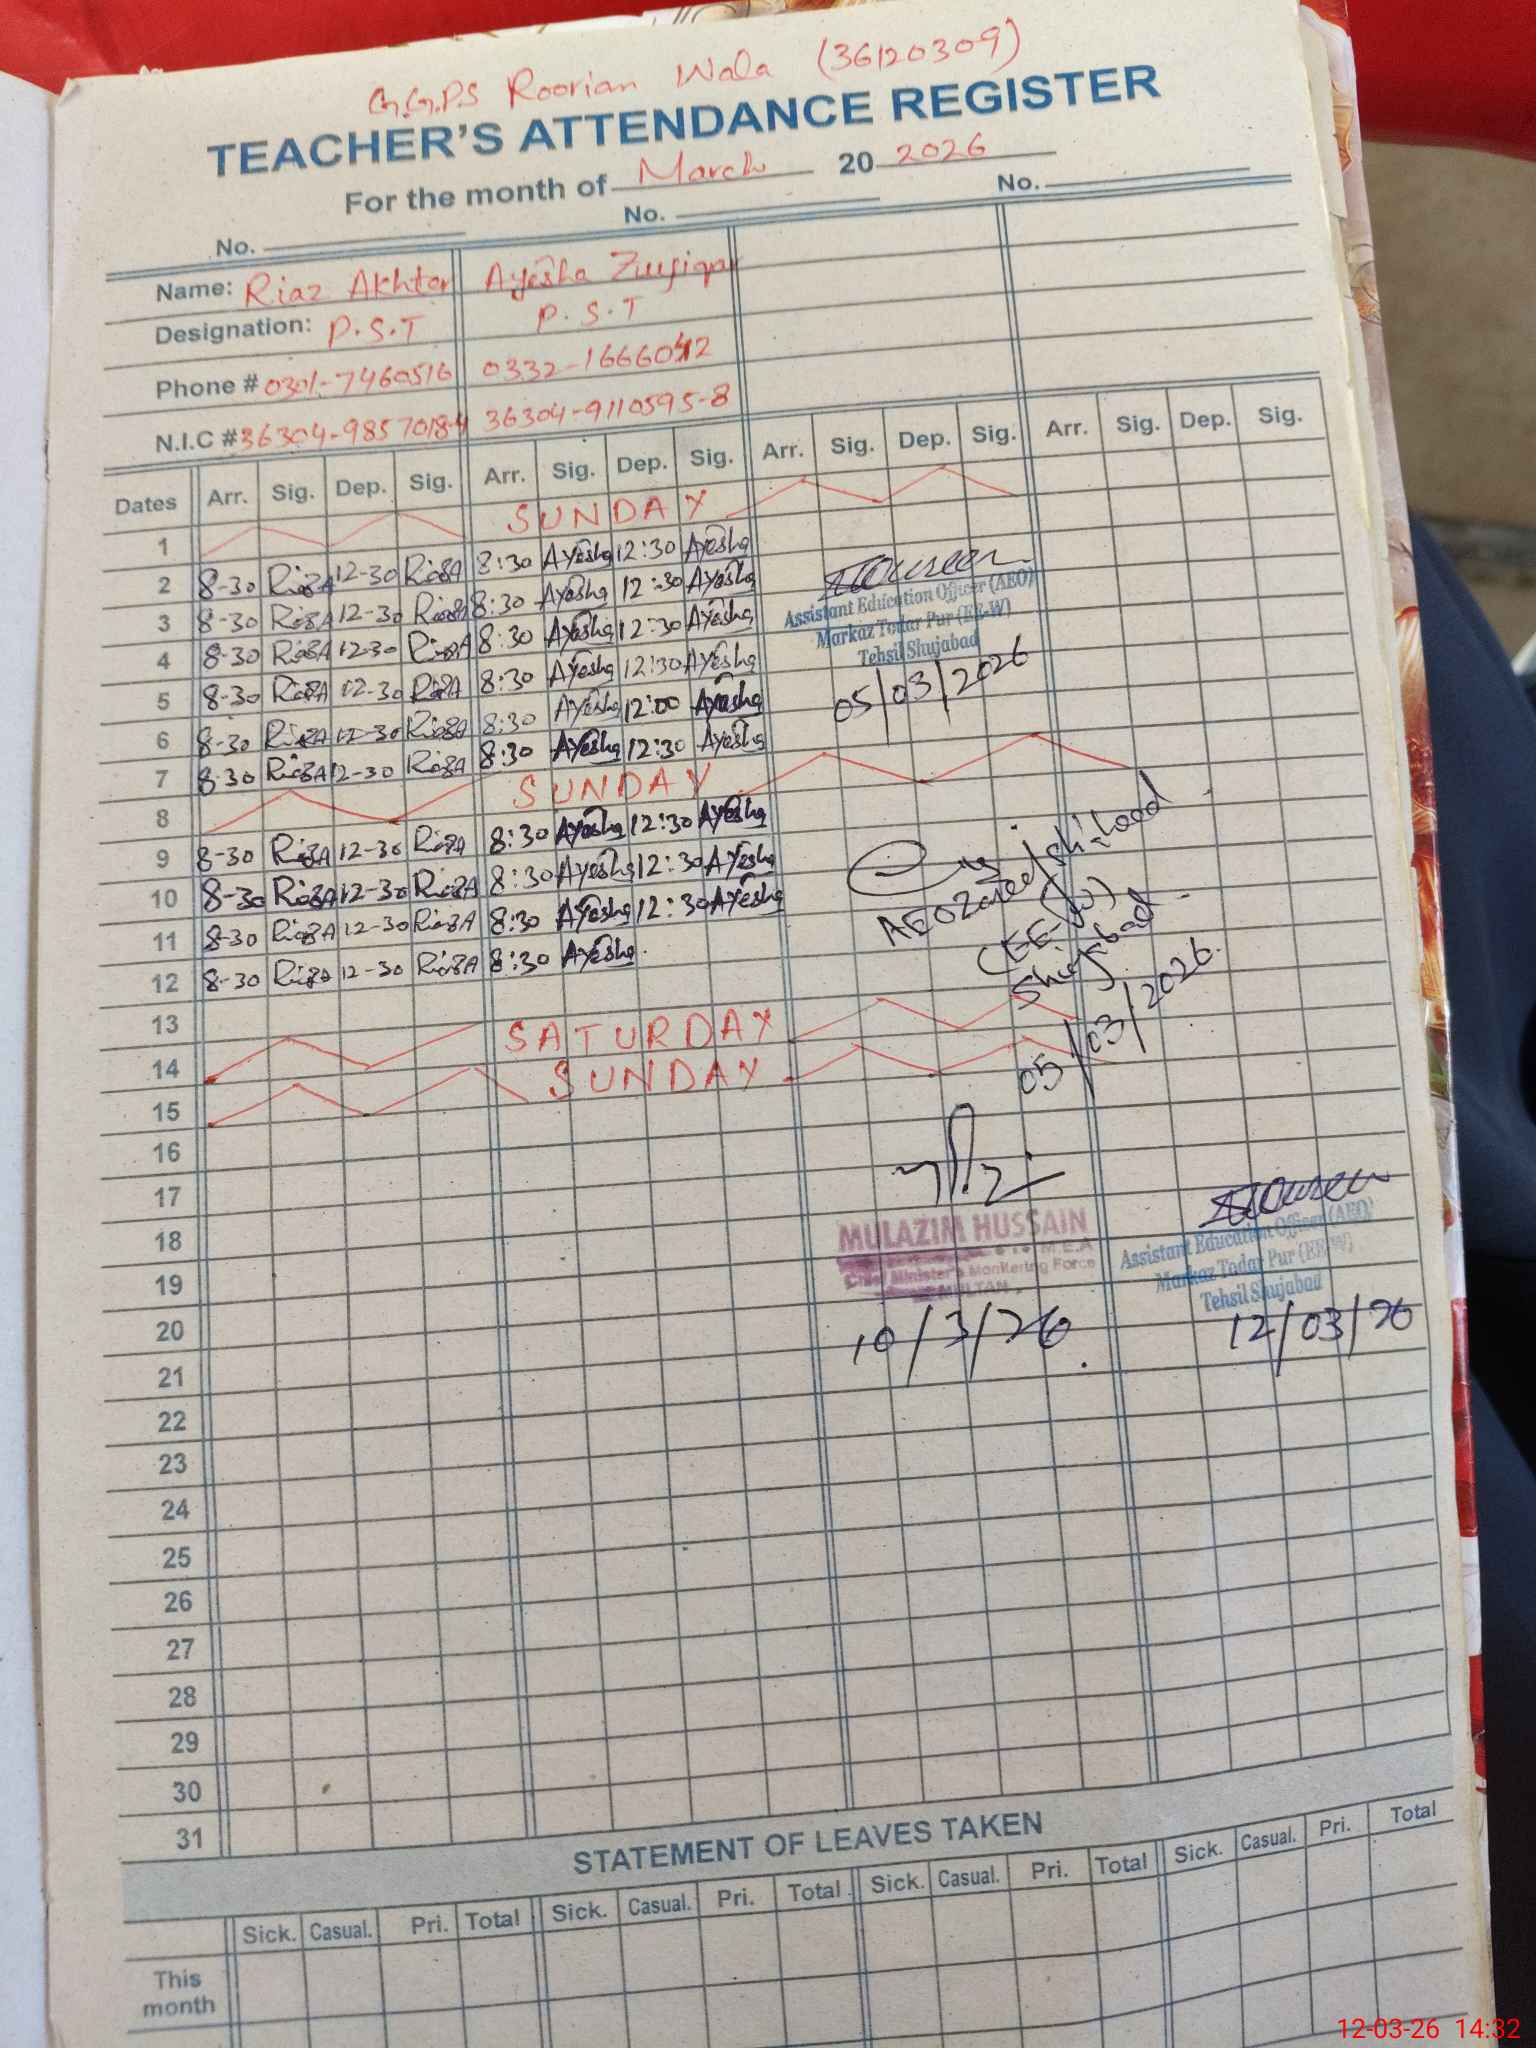 G.G.P.S Roorian Wala (36120309)
TEACHER'S ATTENDANCE REGISTER
For the month of March 20 2026
No. No. No.
Name: Riaz Akhtar Ayesha Zulfiqar
Designation: P.S.T P.S.T
Phone # 0301-7460516 0332-1666042
N.I.C # 36304-9857018-4 36304-9110595-8
Dates Arr. Sig. Dep. Sig. Arr. Sig. Dep. Sig. Arr. Sig. Dep. Sig. Arr. Sig. Dep. Sig.
1 SUNDAY
2 8-30 RiazA 12-30 RiazA 8:30 Ayesha 12:30 Ayesha
3 8-30 RiazA 12-30 RiazA 8:30 Ayesha 12:30 Ayesha
4 8-30 RiazA 12-30 RiazA 8:30 Ayesha 12:30 Ayesha
5 8-30 RiazA 12-30 RiazA 8:30 Ayesha 12:30 Ayesha
6 8-30 RiazA 12-30 RiazA 8:30 Ayesha 12:00 Ayesha
7 8-30 RiazA 12-30 RiazA 8:30 Ayesha 12:30 Ayesha
8 SUNDAY
9 8-30 RiazA 12-30 RiazA 8:30 Ayesha 12:30 Ayesha
10 8-30 RiazA 12-30 RiazA 8:30 Ayesha 12:30 Ayesha
11 8-30 RiazA 12-30 RiazA 8:30 Ayesha 12:30 Ayesha
12 8-30 RiazA 12-30 RiazA 8:30 Ayesha
13
14 SATURDAY
15 SUNDAY
16
17
18
19
20
21
22
23
24
25
26
27
28
29
30
31
Assistant Education Officer (AEO)
Markaz Todar Pur (EE-W)
Tehsil Shujabad
05/03/2026
AEO
(EE-W)
Shujabad
05/03/2026.
MULAZIM HUSSAIN
M.E.A
Chief Minister's Monitering Force
MULTAN.
10/3/26.
Assistant Education Officer (AEO)
Markaz Todar Pur (EE-W)
Tehsil Shujabad
12/03/26
STATEMENT OF LEAVES TAKEN
Sick. Casual. Pri. Total Sick. Casual. Pri. Total Sick. Casual. Pri. Total Sick. Casual. Pri. Total
This
month
12-03-26 14:32